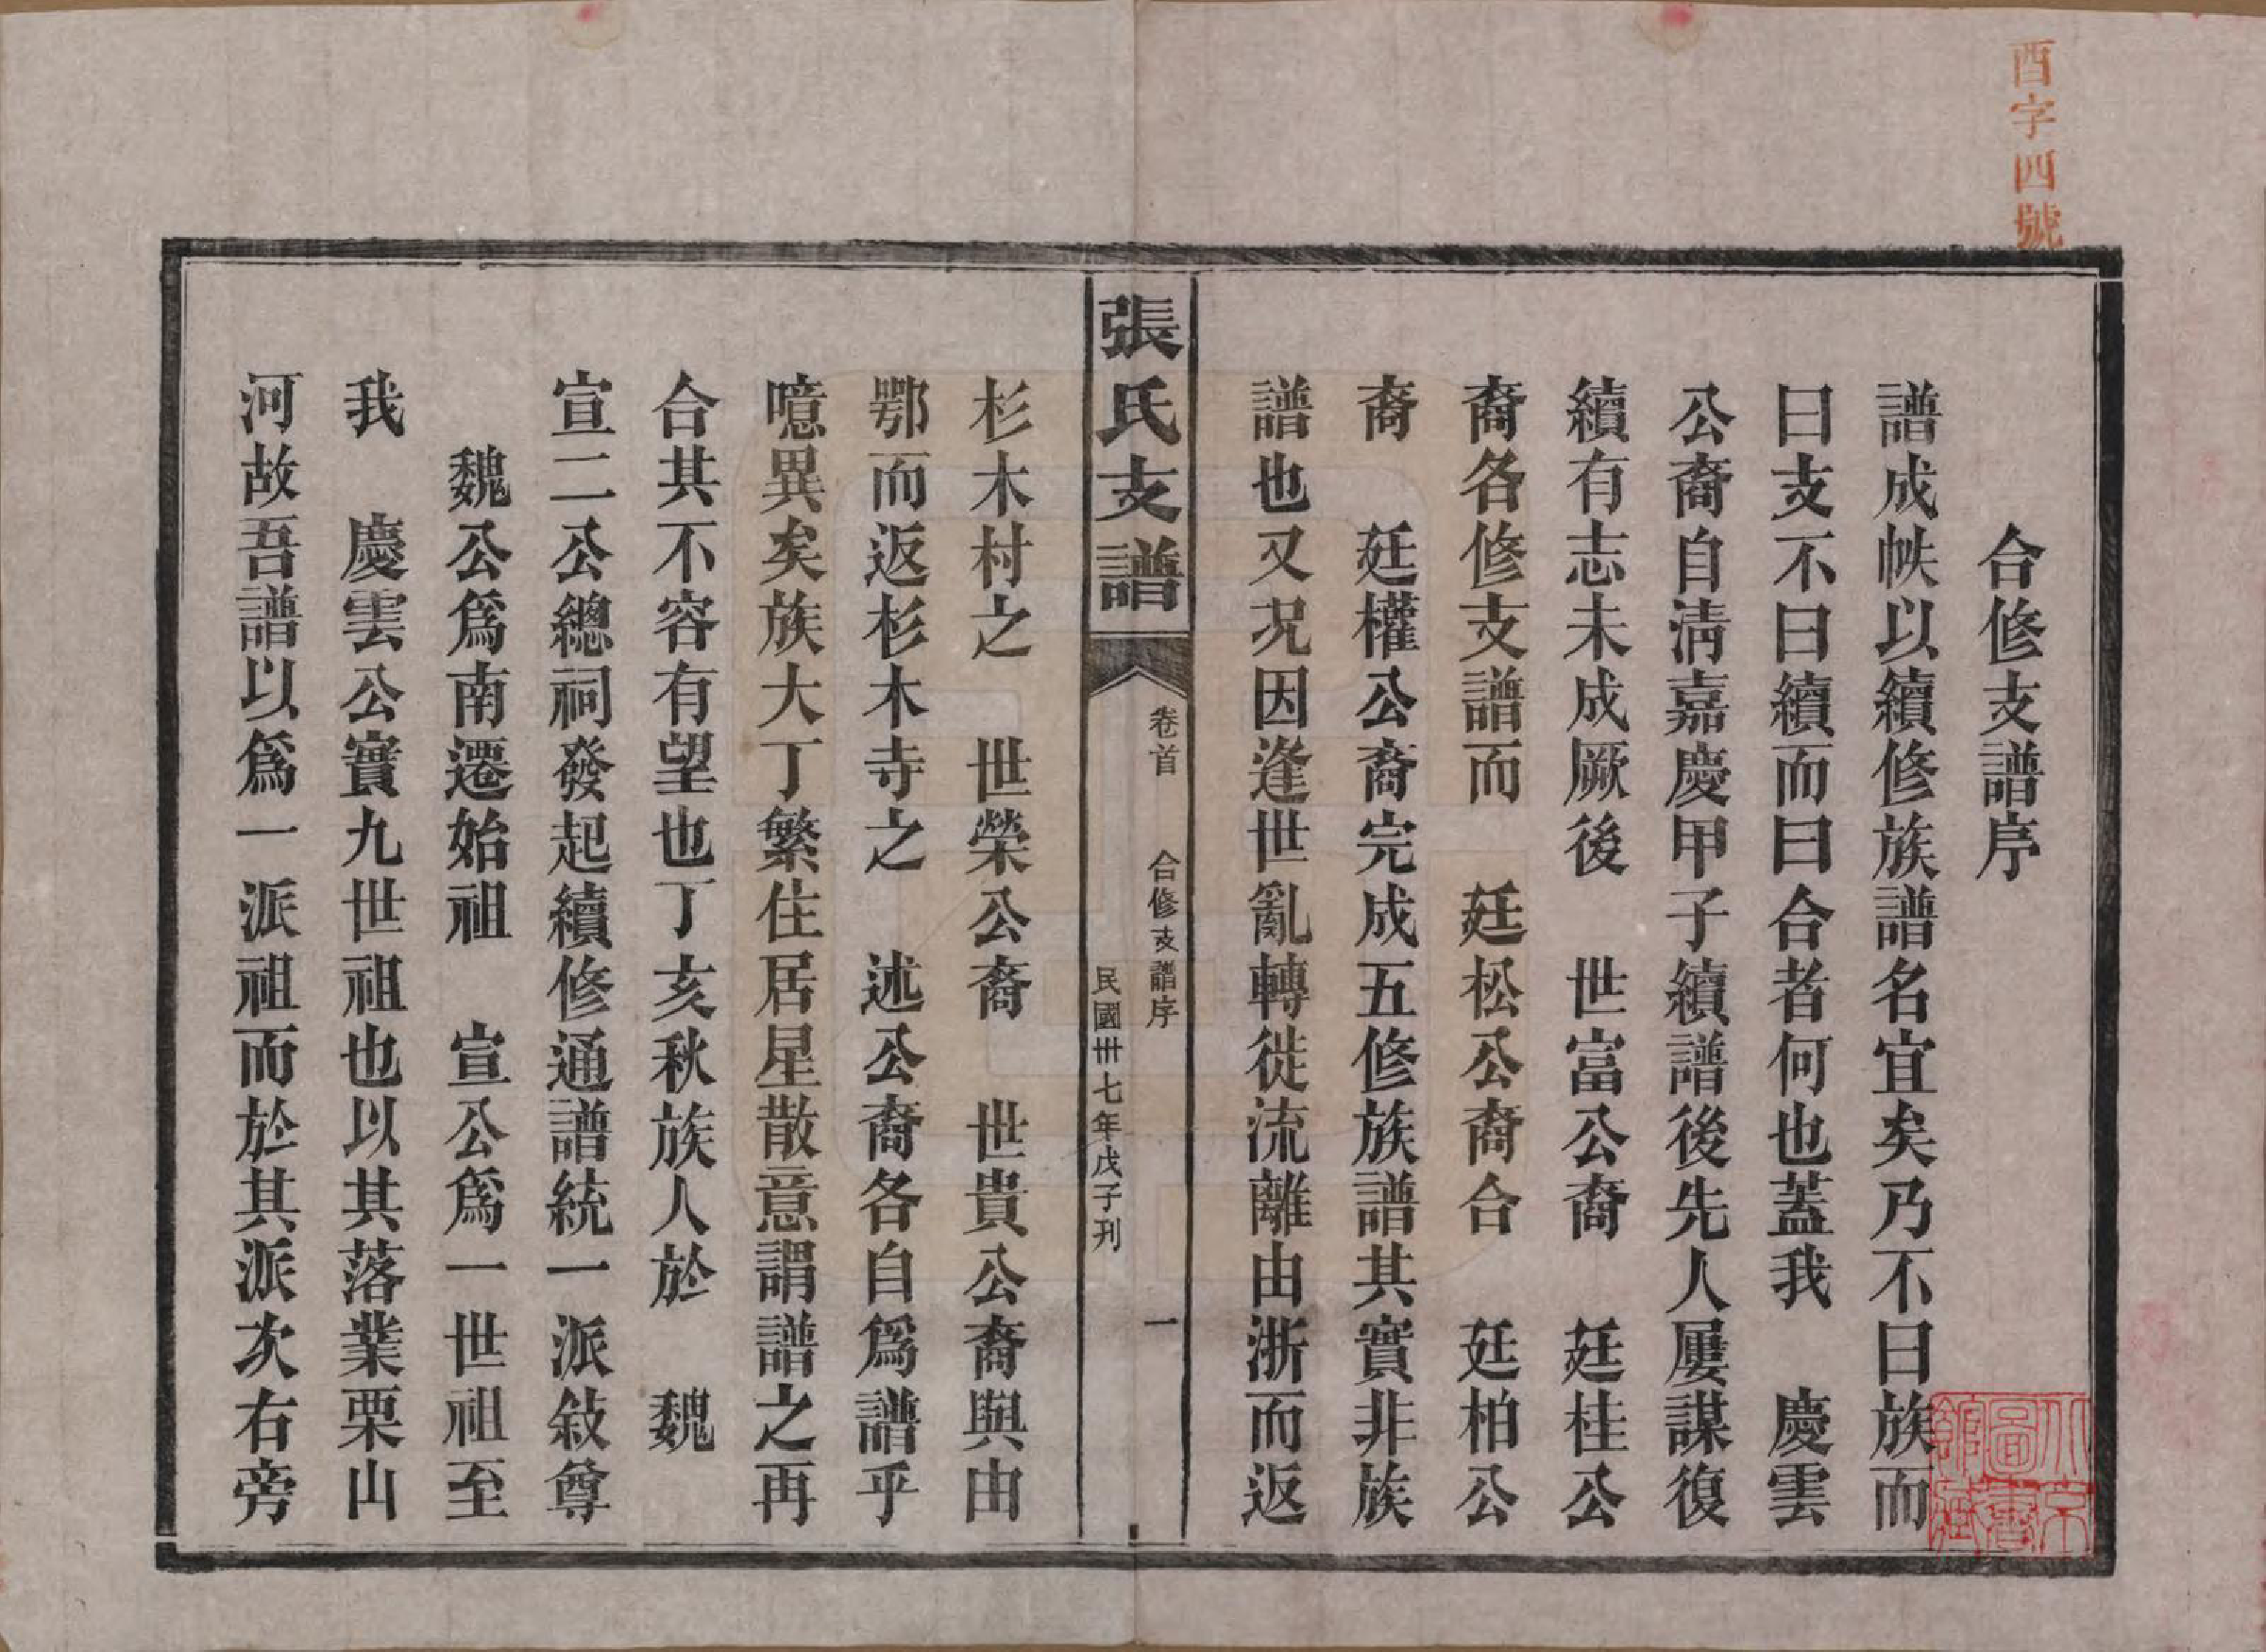 酉字四號
合修支譜序
譜成帙以續修族譜名宜矣乃不曰族而
曰支不曰續而曰合者何也蓋我　慶雲
公裔自清嘉慶甲子續譜後先人屢謀復
續有志未成厥後　世富公裔　廷桂公
裔各修支譜而　廷松公裔合　廷柏公
裔　廷權公裔完成五修族譜其實非族
譜也又況因逢世亂轉徙流離由浙而返
張氏支譜
卷首　合修支譜序
一
民國卅七年戊子刊
杉木村之　世榮公裔　世貴公裔與由
鄂而返杉木寺之　述公裔各自爲譜乎
噫異矣族大丁繁住居星散意謂譜之再
合其不容有望也丁亥秋族人於　魏
宣二公總祠發起續修通譜統一派敍尊
魏公爲南遷始祖　宣公爲一世祖至
我　慶雲公實九世祖也以其落業栗山
河故吾譜以爲一派祖而於其派次右旁
北京圖書館藏